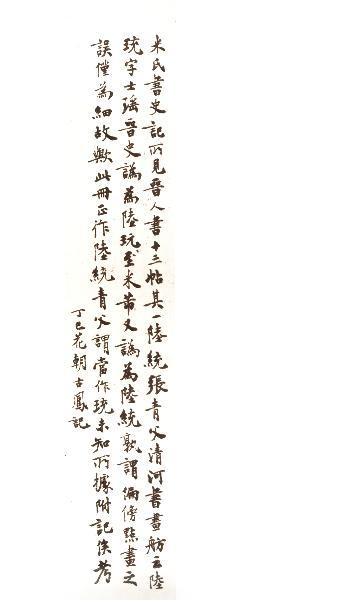 米氏書史記所見晉人書十三帖其一陸統張青父清河書畫舫云陸
玩字士瑶晉史譌為陸玩至米芾又譌為陸統孰謂偏傍點畫之
誤僅為細故歟此冊正作陸統青父謂當作玩未知所據附記俟考
丁巳花朝古鳳記